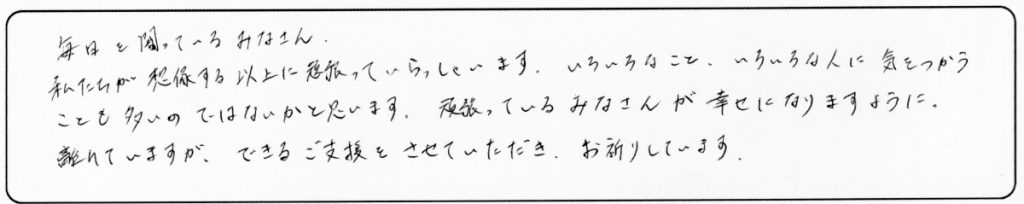 毎日を闘っているみなさん.
私たちが想像する以上に頑張っていらっしゃいます. いろいろなこと、いろいろな人に気をつかう
ことも多いのではないかと思います. 頑張っているみなさんが幸せになりますように.
離れていますが、できるご支援をさせていただき、お祈りしています.